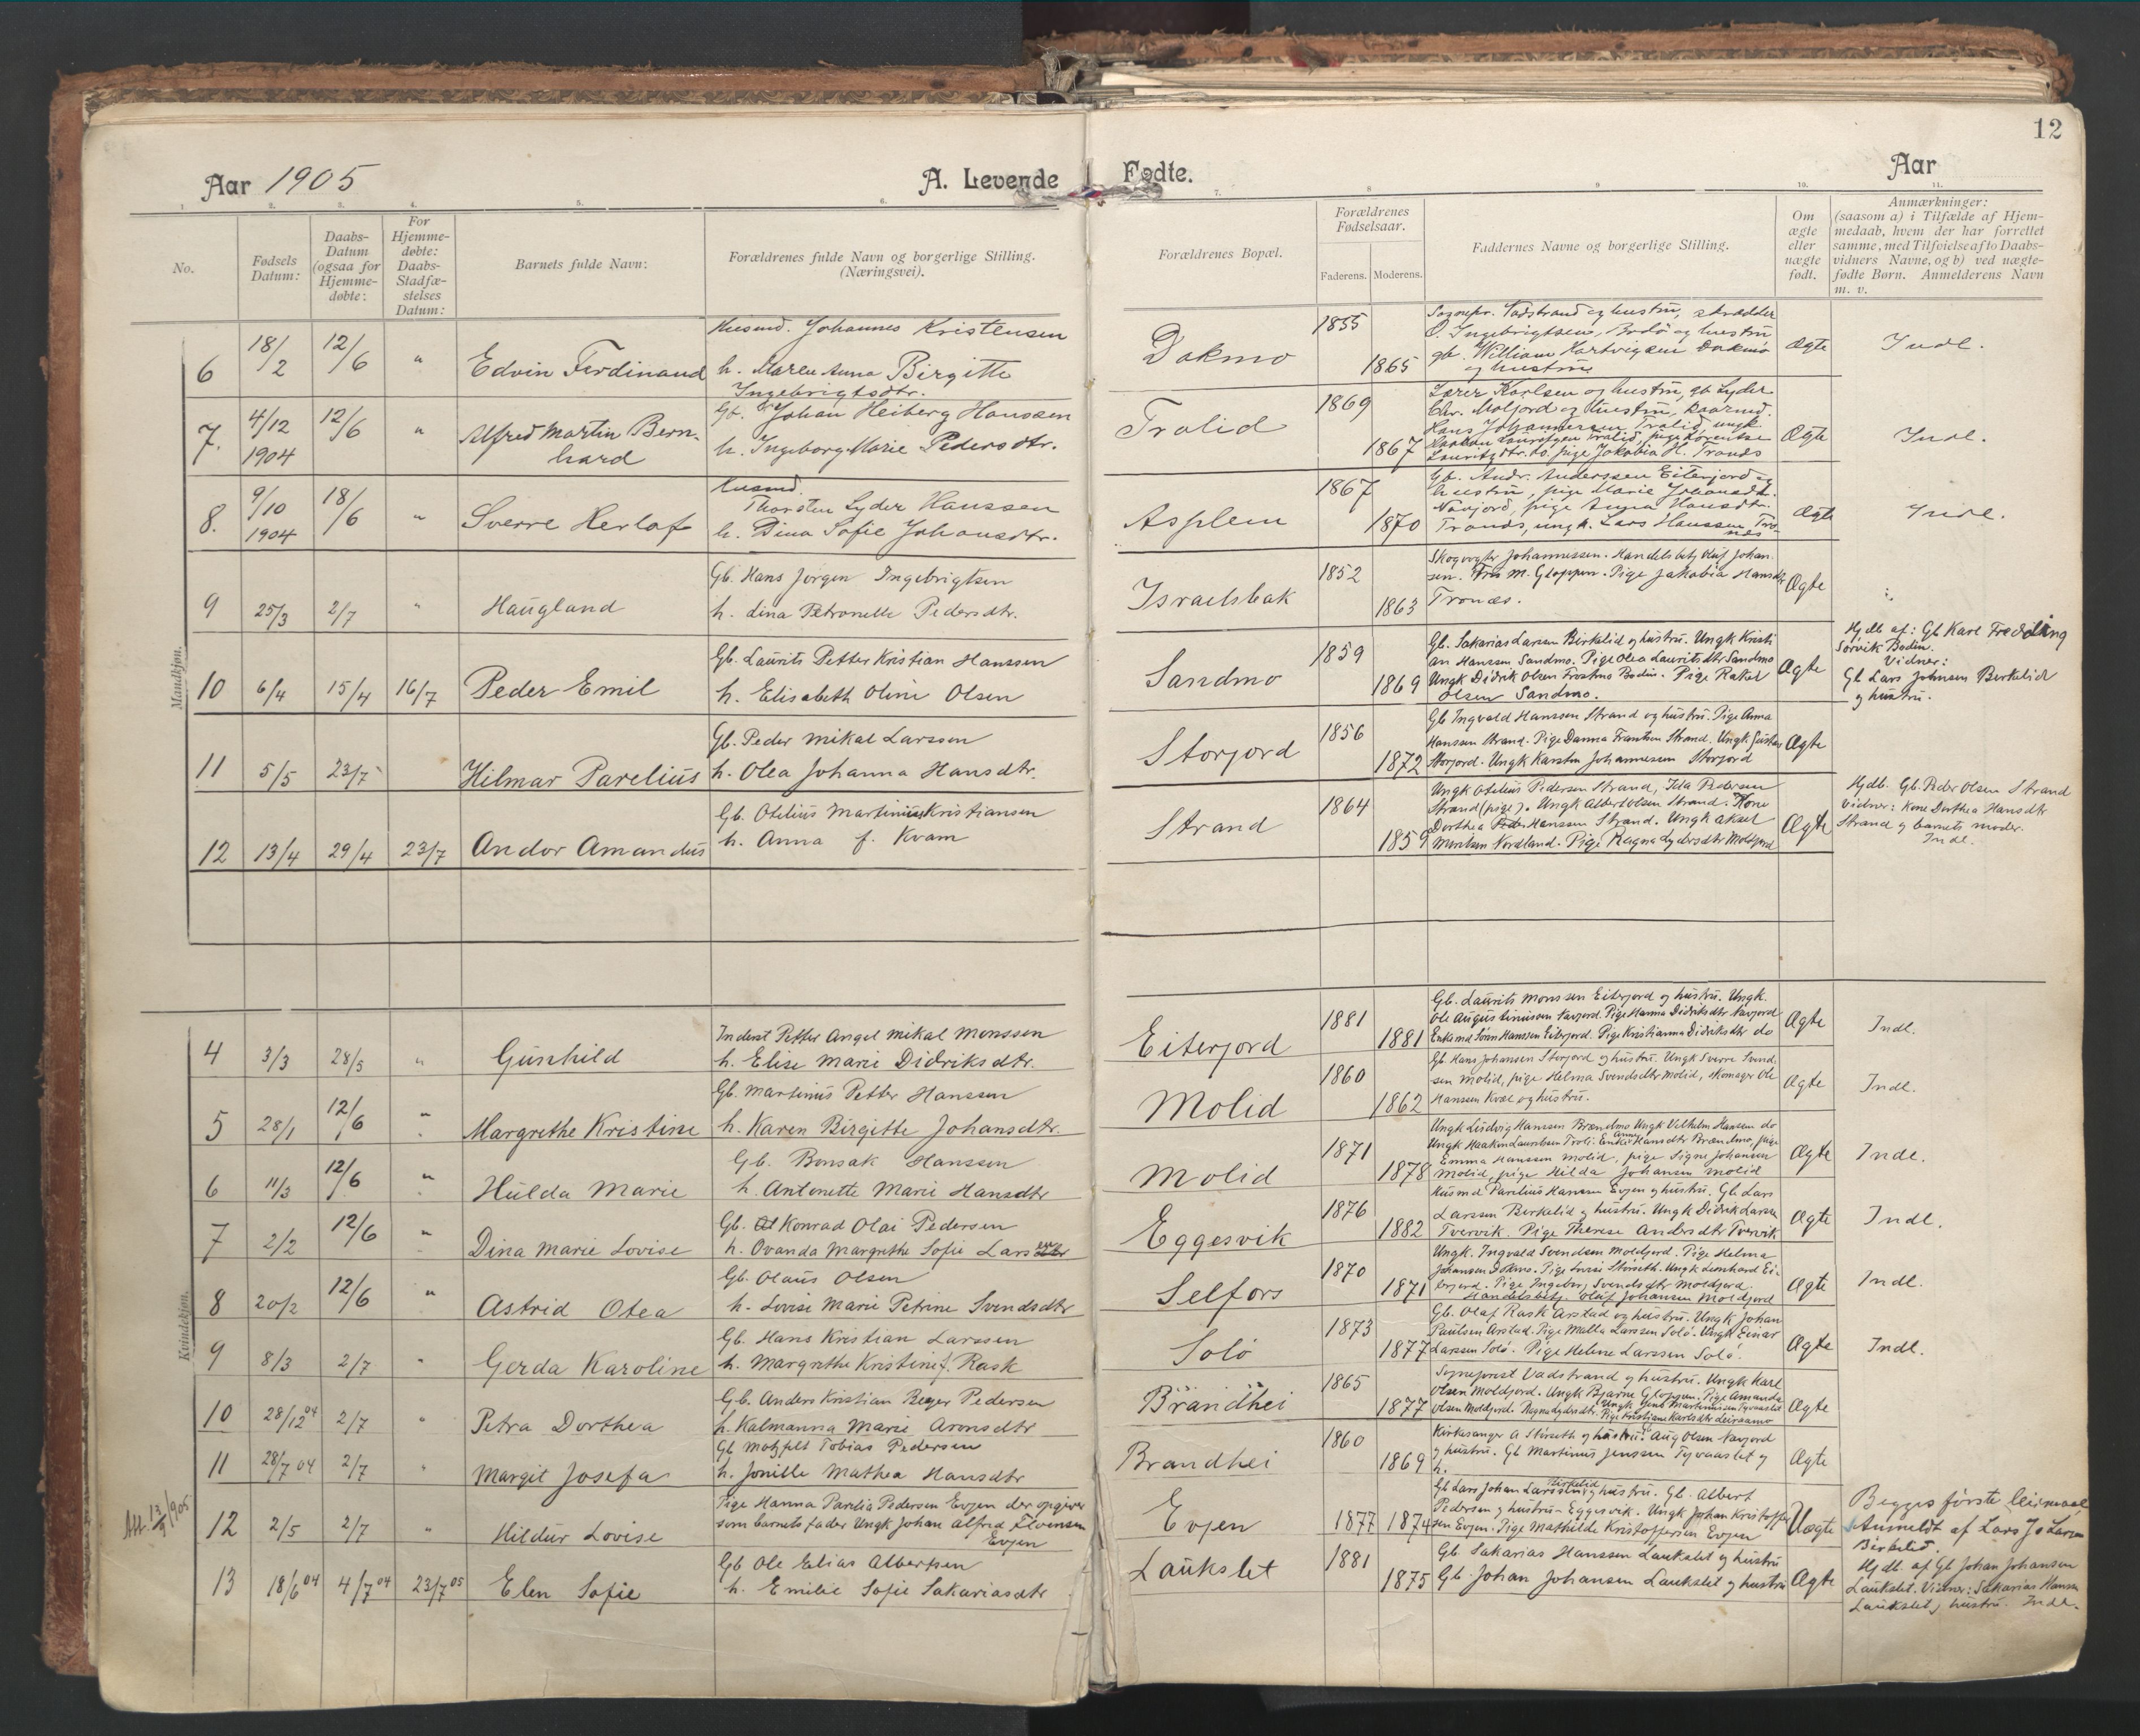 12
Aar 1905
A. Levende Fødte.
Aar
1. 2. 3. 4. 5. 6. 7. 8 9 10. 11.
No.
Fødsels Datum:
Daabs-Datum (ogsaa for Hjemme-døbte:
For Hjemme-døbte: Daabs-Stadfæ-stelses Datum:
Barnets fulde Navn:
Forældrenes fulde Navn og borgerlige Stilling.
(Næringsvei).
Forældrenes Bopæl.
Forældrenes Fødselsaar.
Faderens. Moderens.
Faddernes Navne og borgerlige Stilling.
Om ægte eller uægte født.
Anmærkninger:
(saasom a) i Tilfælde af Hjem-
medaab, hvem der har forrettet
samme, med Tilføielse af to Daabs-
vidners Navne, og b) ved uægte-
fødte Børn. Anmelderens Navn
m. v.
Mandkjøn.
6 18/2 12/6 " Edvin Ferdinand
Husmd. Johannes Kristensen
h. Maren Anna Birgitte
Ingebrigtsdtr.
Dokmo 1855 1865
Sognepr. Vadstrand og hustru, skrædder
O. Ingebrigtsen, Bodø og hustru
gb. William Hartvigsen Dokmo
og hustru
Ægte Indl.
7. 4/12 1904 12/6 " Alfred Martin Bern-
hard
Gb. Johan Heiberg Hanssen
h. Ingeborg Marie Pedersdtr.
Trolid 1869 1867
Lærer Karlsen og hustru, gb Lyder
Chr. Moljord og hustru, kaarmd.
Hans Johannesen Trolid, ungk.
Haakon Lauritzen Trolid, pige Lorentse
Lauritzdtr. do, pige Jakobia H. Trones
Ægte Indl.
8. 9/10 1904 18/6 " Sverre Herlof
Husmd.
Thorsten Lyder Hanssen
h. Dina Sofie Johansdtr.
Asplem 1867 1870
Gb. Andr. Anderssen Eiterjord og
hustru, pige Marie Johansdtr.
Navjord, pige Anna Hansdtr.
Trones, ungk. Lars Hanssen Tro-
nes
Ægte Indl.
9 25/3 2/7 " Haugland
Gb. Hans Jørgen Ingebrigtsen
h. Lina Petronelle Pedersdtr.
Israelsbak 1852 1863
Skogvogter Johannessen. Handelsbetj Oluf Johan.
sen. Frk M. Gloppen. Pige Jakobia Hansdtr
Trones.
Ægte
10 6/4 15/4 16/7 Peder Emil
Gb. Laurits Petter Kristian Hanssen
h. Elisabeth Oline Olsen
Sandmo 1859 1869
Gb. Sakarias Larsen Birkelid og hustru. Ungk Kristi
an Hanssen Sandmo. Pige Olea Lauritsdtr Sandmo
Ungk Didrik Olsen Frostmo Bodin. Pige Rakel
Olsen Sandmo.
Ægte
Hj. db af: Gb Karl Fredding
Sørvik Bodin.
Vidner:
Gb Lars Johnsen Berkelid
og hustru.
11 5/5 23/7 Hilmar Parelius
Gb. Peder Mikal Larssen
h. Olea Johanna Hansdtr.
Storjord 1856 1872
Gb Ingvald Hanssen Strand og hustru. Pige Anna
Hanssen Strand. Pige Danna Frantsen Strand. Ungk Gustav
Storjord. Ungk Karsten Johannesen Storjord
Ægte
12 13/4 29/4 23/7 Andor Amandus
Gb. Otelius Martinius Kristiansen
h. Anna f. Kvam
Strand 1864 1859
Ungk Otelius Pedersen Strand, Ida Pedersen
Strand (pige). Ungk Albert Olsen Strand. Kone
Dorthea Hanssen Strand. Ungk Aksel
Moritsen Nordland. Pige Ragna Lydersdtr Moldjord
Ægte
Hjdb. Gb. Peder Olsen Strand
Vidner: Kone Dorthea Hansdtr
Strand og barnets moder.
Indl.
Kvindekjøn.
4 3/3 28/5 " Gunhild
Inderst Petter Angel Mikal Monssen
h. Elise Marie Didriksdtr.
Eiterjord 1881 1881
Gb. Laurits Monssen Eiterjord og hustru. Ungk.
Ole Augustinussen Navjord. Pige Hanna Didriksdtr Navjord
Enkemd Sønn Hanssen Eiterjord. Pige Kristianna Didriksdtr do
Ægte Indl.
5 28/1 12/6 " Margrethe Kristine
Gb. Martinus Petter Hanssen
h. Karen Birgitte Johansdtr.
Molid 1860 1862
Gb. Hans Johansen Storjord og hustru. Ungk Sverre Svend.
sen Molid, pige Helma Svendsdtr Molid, skomager Ole
Hanssen Kvæl og hustru.
Ægte Indl.
6 11/3 12/6 " Hulda Marie
Gb. Bonsak Hanssen
h. Antonette Marie Hansdtr
Molid 1871 1878
Ungk Ludvig Hanssen Brændmo Ungk Vilhelm Hansen do
Ungk Haakon Lauritsen Troli. Enke Anne Hansdtr Brændmo, pige
Emma Hanssen Molid, pige Signe Johansen
Molid, pige Hilda Johansen Molid
Ægte Indl.
7 2/2 12/6 " Dina Marie Lovise
Gb. Konrad Olai Pedersen
h. Ovanda Margrethe Sofie Larssen
Eggesvik 1876 1882
Husmd Parelius Hanssen Evjen og hustru. Gb. Lars
Larssen Berkelid og hustru. Ungk Didrik Larsen
Tverrvik. Pige Therese Andersdtr Tverrvik
Ægte Indl.
8 20/2 12/6 " Astrid Otea
Gb. Olaus Olsen
h. Lovise Marie Petrine Svendsdtr
Selfors 1870 1871
Ungk. Ingvald Svendsen Moldjord. Pige Helma
Johansen Dokmo. Pige Lovise Storseth. Ungk Leonhard Ei-
terjord. Pige Ingeborg Svendsdtr Moldjord.
Handelsbetj. Oluf Johansen Moldjord
Ægte Indl.
9 8/3 2/7 " Gerda Karoline
Gb. Hans Kristian Larssen
h. Margrethe Kristine f. Rask
Solø 1873 1877
Gb. Olaf Rask Arstad og hustru. Ungk Johan
Paulsen Arstad. Pige Malla Larssen Solø. Ungk Einar
Larssen Solø. Pige Helene Larssen Solø.
Ægte Indl.
10 28/12 04 2/7 " Petra Dorthea
Gb. Anders Kristian Beyer Pedersen
h. Kalmanna Marie Aronsdtr
Brandhei 1865 1877
Sogneprest Vadstrand og hustru. Ungk Karl
Olsen Moldjord. Ungk Bjarne Gloppen. Pige Amanda
Olsen Moldjord. Ragna Lydersdtr. Ungk Jens Martinussen Tyvaaslet
Pige Kristiane Karlsdtr Leiraamo
Ægte
11 28/7 04 2/7 " Margit Josefa
Gb Motzfelt Tobias Pedersen
h. Jonille Mathea Hansdtr
Brandhei 1860 1869
Kirkesanger A Storseth og hustru. Aug Olsen Navjord
og hustru. Gb Martinus Jenssen Tyvaaslet og
h.
Ægte
Att. 13/9 1905
12 2/5 2/7 " Hildur Lovise
Pige Hanna Parelia Pedersen Evjen der opgiver
som barnets fader Ungk Johan Alfred Evensen
Evjen
Evjen 1877 1874
Gb Lars Johan Larssen Birkelid og hustru. Gb. Albert
Pedersen og hustru - Eggesvik. Ungk Johan Kristoffer
sen Evjen. Pige Mathilde Kristoffersen Evjen
Uægte
Begges første leiermaal
Anmeldt af Lars Jo Larssen
Birkelid.
13 18/6 04 4/7 04 23/7 05 Elen Sofie
Gb Ole Elias Albertsen
h. Emilie Sofie Sakariasdtr
Laukslet 1881 1875
Gb. Sakarias Hanssen Laukslet og hustru
Gb. Johan Johansen Laukslet og hustru
Ægte
Hjdb. af Gb Johan Johansen
Laukslet. Vidner: Sakarias Hanssen
Laukslet og hustru. Indl.